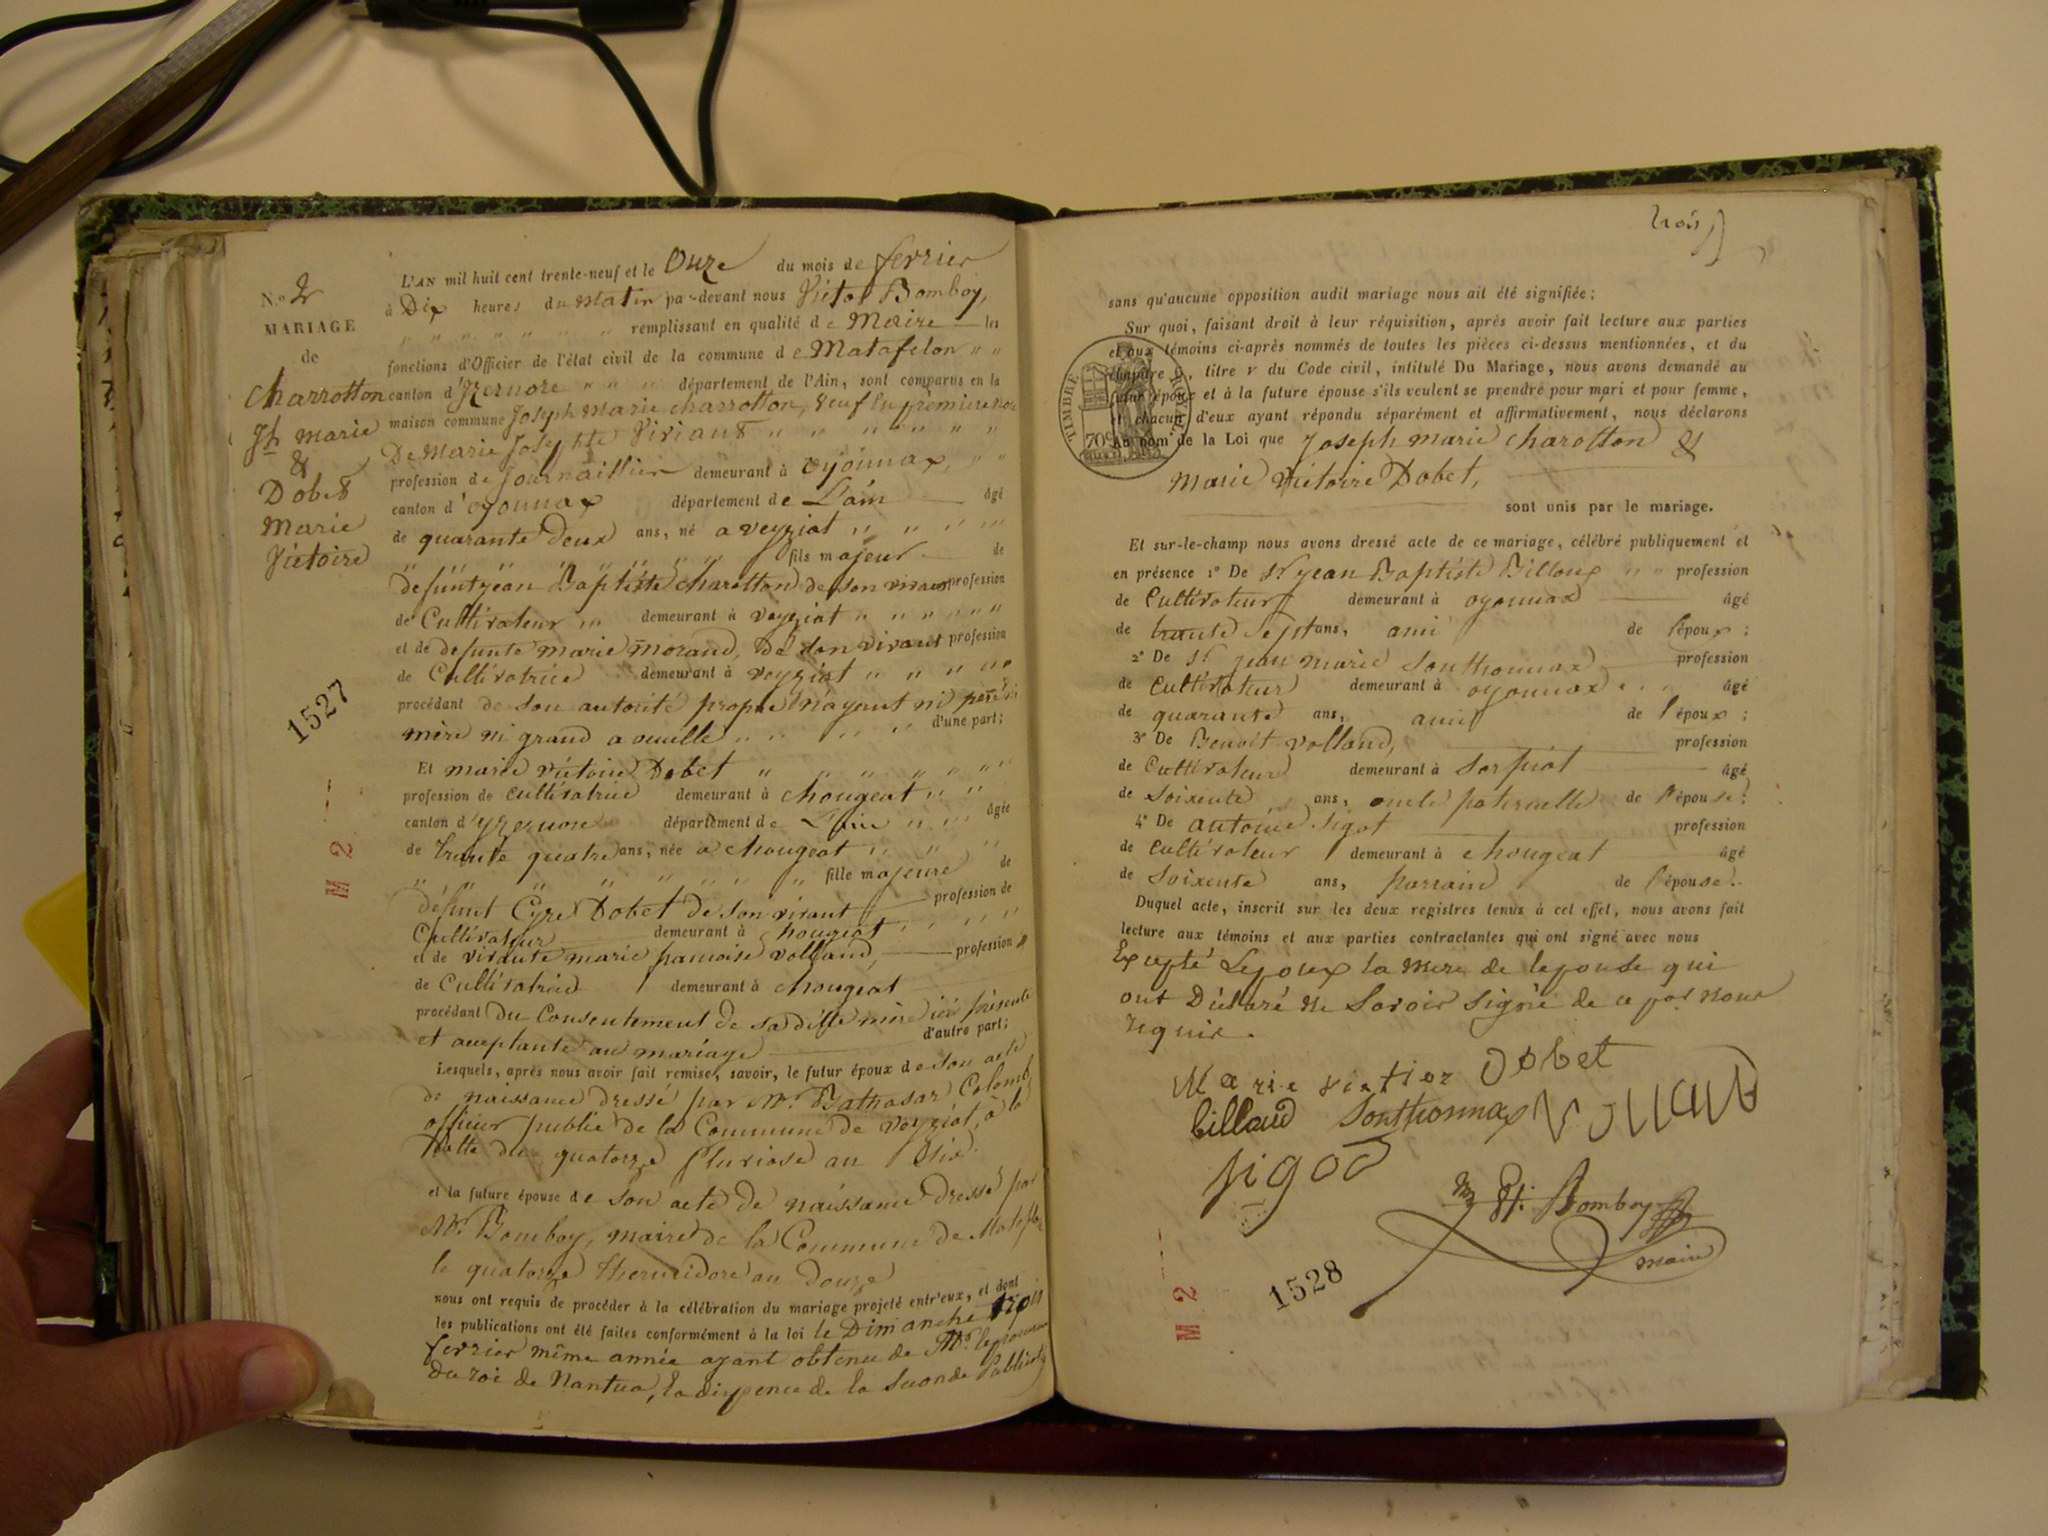 N.º 2
MARIAGE
de
Charrotton
Jh marie
&
Dobet
Marie
Victoire
1527
M 2
L'AN mil huit cent trente-neuf et le Onze du mois de fevrier
à Dix heures du Matin par-devant nous Victor Bomboy,
remplissant en qualité de Maire les
fonctions d'Officier de l'état civil de la commune de Matafelon
canton d'Izernore département de l'Ain, sont comparus en la
maison commune Joseph Marie charrotton, veuf en premiere
De Marie Josephte Viviant
profession de Journaillier demeurant à oyonnax,
canton d'oyonnax département de L'ain âgé
de quarante deux ans, né a veyziat
fils majeur de
defunt jean Baptiste charotton de son vivant profession
de Cultivateur demeurant à veyziat
et de defunte marie morand, De son vivant profession
de Cultivatrice demeurant à veyziat
procédant de son autorité propre n'ayant ni père ni
mère ni grand a ouille d'une part;
Et marie victoire Dobet
profession de cultivatrice demeurant à chougeat
canton d'yzernore département de L'ain âgée
de trente quatre ans, née a chougeat
fille majeure de
défunt Cyre Dobet de son vivant profession de
Cultivateur demeurant à chougeat
et de vivante marie francoise volland, profession
de Cultivatrice demeurant à chougeat
procédant Du Consentement de sa ditte mère ici présente
et aceptante au mariage d'autre part;
Lesquels, après nous avoir fait remise, savoir, le futur époux de son acte
de naissance dressé par Mr. Bathasar Colomb
officier public de la Commune de veyziat, à la
datte du quatorze pluviose an
et la future épouse de son acte de naissance dressé par
Mr. Bomboy, maire de la Commune de Matafelon
le quatorze thermidore an douze
nous ont requis de procéder à la célébration du mariage projeté entr'eux, et dont
les publications ont été faites conformément à la loi le Dimanche trois
fevrier même année ayant obtenu de Mr.
Du roi de Nantua, la dispence de la seconde Publication
trois
sans qu'aucune opposition audit mariage nous ait été signifiée;
Sur quoi, faisant droit à leur réquisition, après avoir fait lecture aux parties
et aux témoins ci-après nommés de toutes les pièces ci-dessus mentionnées, et du
chapitre, titre v du Code civil, intitulé Du Mariage, nous avons demandé au
futur époux et à la future épouse s'ils veulent se prendre pour mari et pour femme,
et chacun d'eux ayant répondu séparément et affirmativement, nous déclarons
au nom de la Loi que Joseph marie charotton &
marie victoire Dobet,
sont unis par le mariage.
TIMBRE ROYAL
70
Et sur-le-champ nous avons dressé acte de ce mariage, célébré publiquement et
en présence 1º De Sr jean Baptiste Billoux profession
de Cultivateur demeurant à oyonnax âgé
de trente sept ans, ami de l'époux;
2º De Sr jean marie Sonthonnax profession
de cultivateur demeurant à oyonnax âgé
de quarante ans, ami de l'époux;
3º De Benoit volland, profession
de Cultivateur demeurant à Sorpiat âgé
de soixente ans, oncle paternelle de l'épouse;
4º De antoine sigot profession
de cultivateur demeurant à chougeat âgé
de soixente ans, parrain de l'épouse.
Duquel acte, inscrit sur les deux registres tenus à cet effet, nous avons fait
lecture aux témoins et aux parties contractantes qui ont signé avec nous
Excepté Lepoux la mere de lepouse qui
ont Déclaré ne Savoir signé de ce par nous
requis.
Marie victior Dobet
billaud Sonthonnax Volland
sigod
Bomboy
maire
1528
M 2